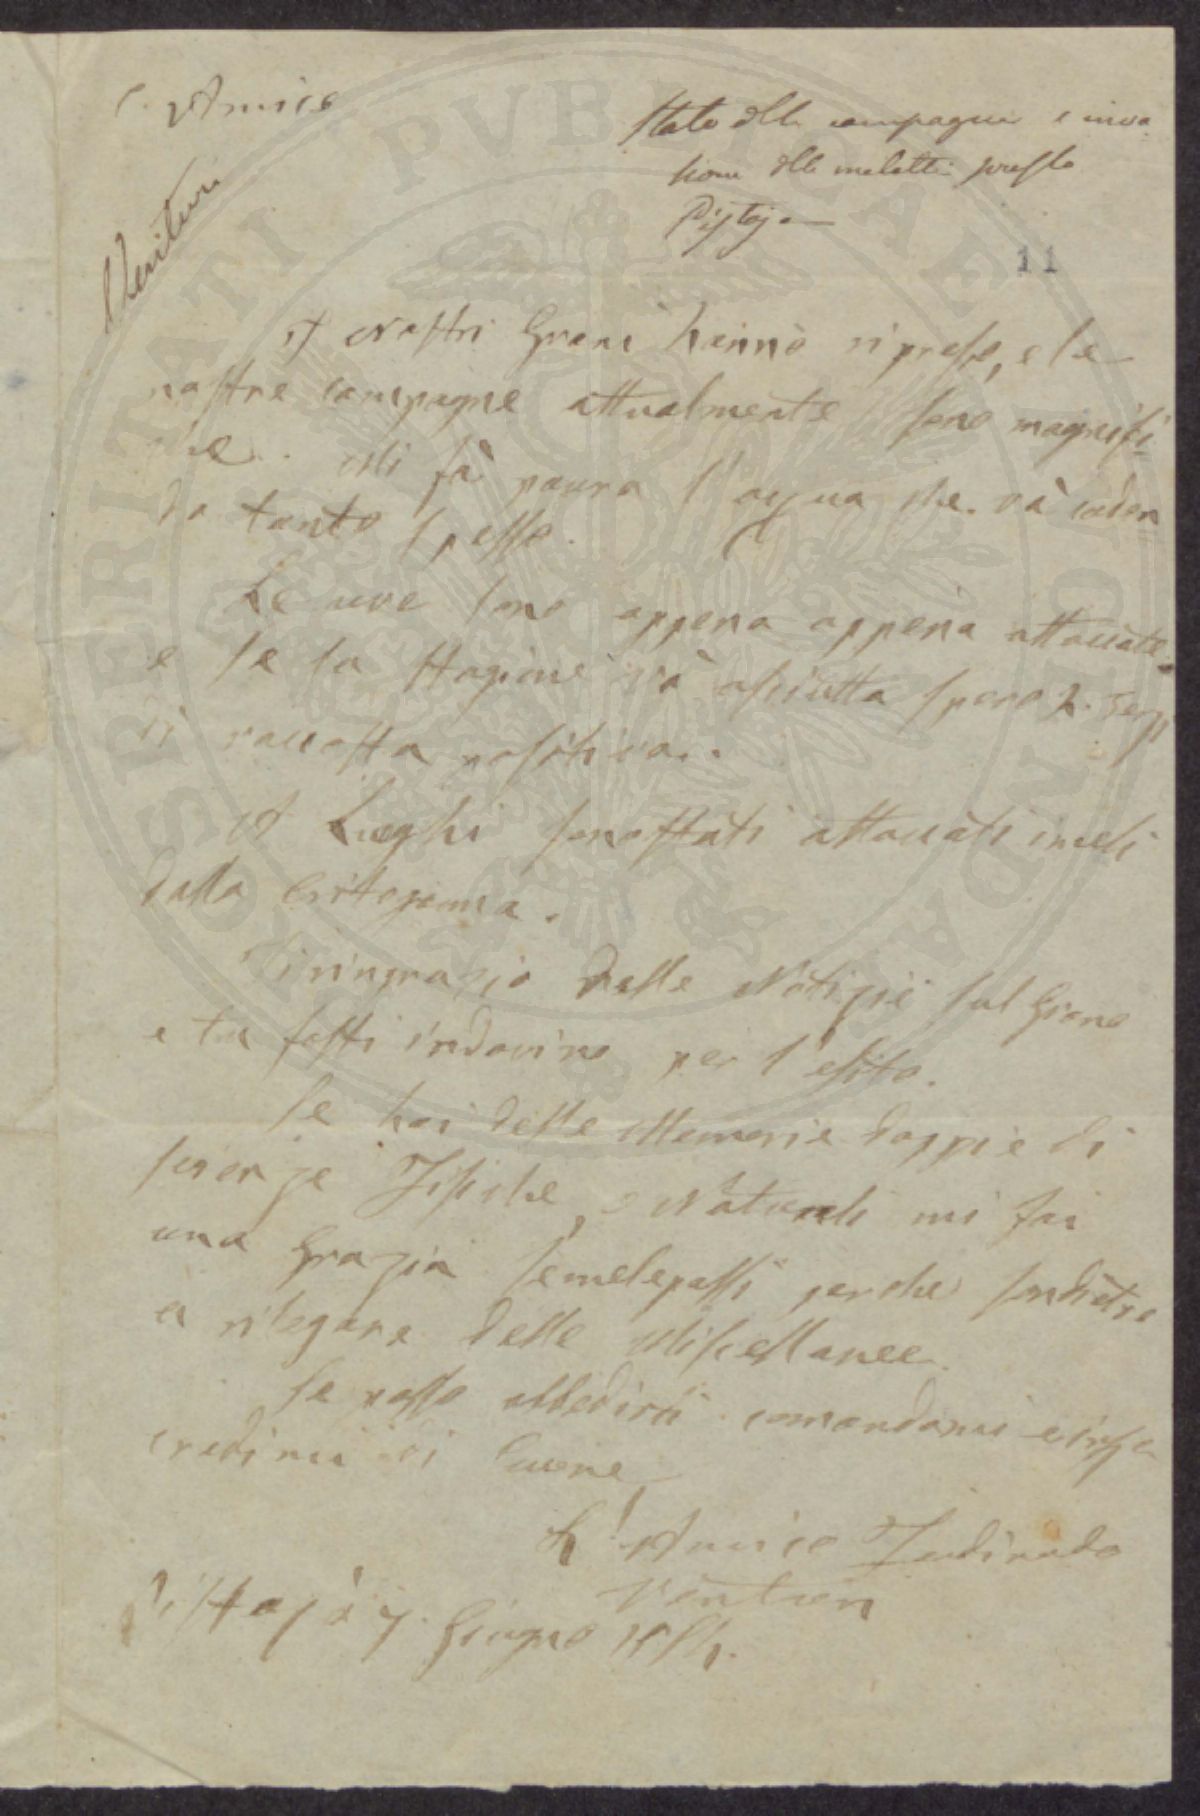 C. Amico
Stato delle campagne e inva
sione delle malattie presso
Pistoja
Venturi
11
I Nostri Grani hanno ripreso, e le
nostre campagne attualmente sono magnifi
che. Mi fà paura l'acqua che và caden
do tanto spesso.
Le uve sono appena appena attaccate
e se la stagione và asciutta spero
di raccolta positiva.
I Luoghi sono stati attaccati
dalla Crittogama.
Ti ringrazio delle Notizie sul Grano
e tu fosti indovino per l'esito.
Se hai delle Memorie doppie di
scienze Fisiche, o Naturali mi fai
una Grazia se me le passi perche son dietro
a rilegare delle Miscellanee.
Se posso obbedirti comandami
credimi di Cuore
L'Amico Ferdinando
Venturi
Pistoja 7 Giugno 1854.
PROSPERITATI PVBLICAE